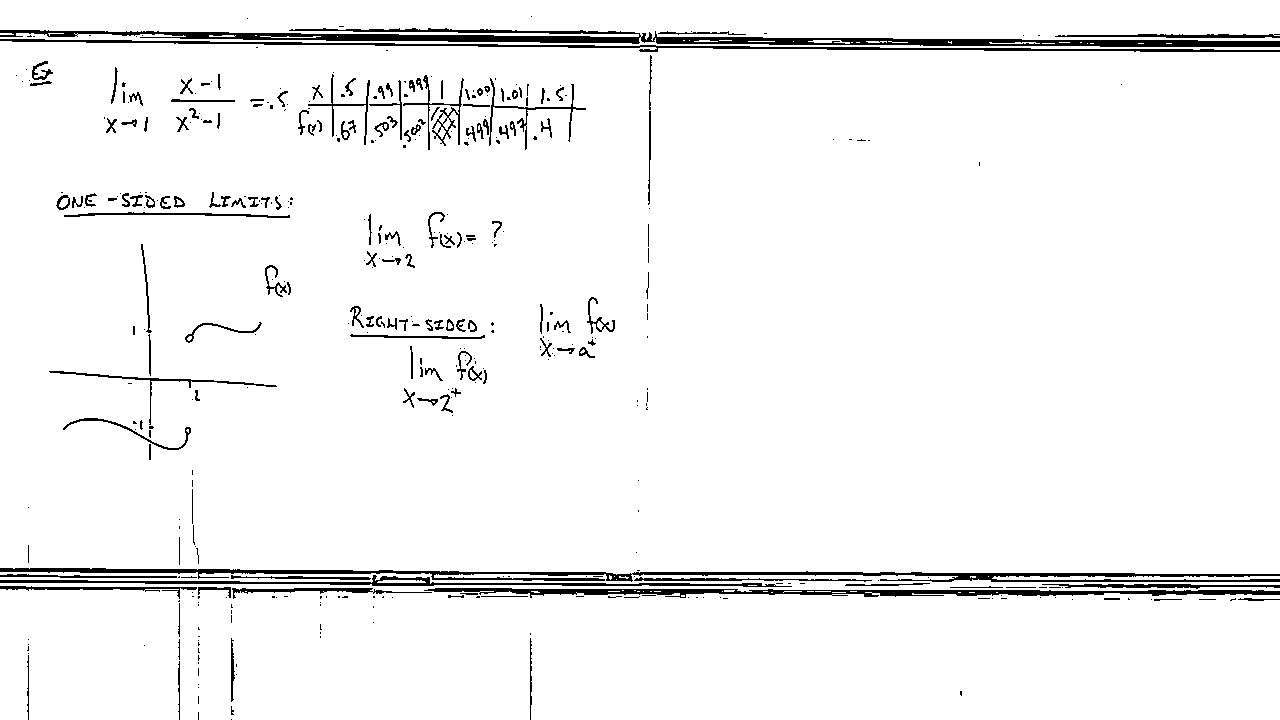 Ex
lim x→1 (x-1)/(x²-1) = .5
x | .5 | .99 | .999 | 1 | 1.001 | 1.01 | 1.5
f(x) | .67 | .503 | .5002 | | .499 | .497 | .4
ONE-SIDED LIMITS:
lim x→2 f(x) = ?
f(x)
1
2
-1
RIGHT-SIDED: lim x→a⁺ f(x)
lim x→2⁺ f(x)